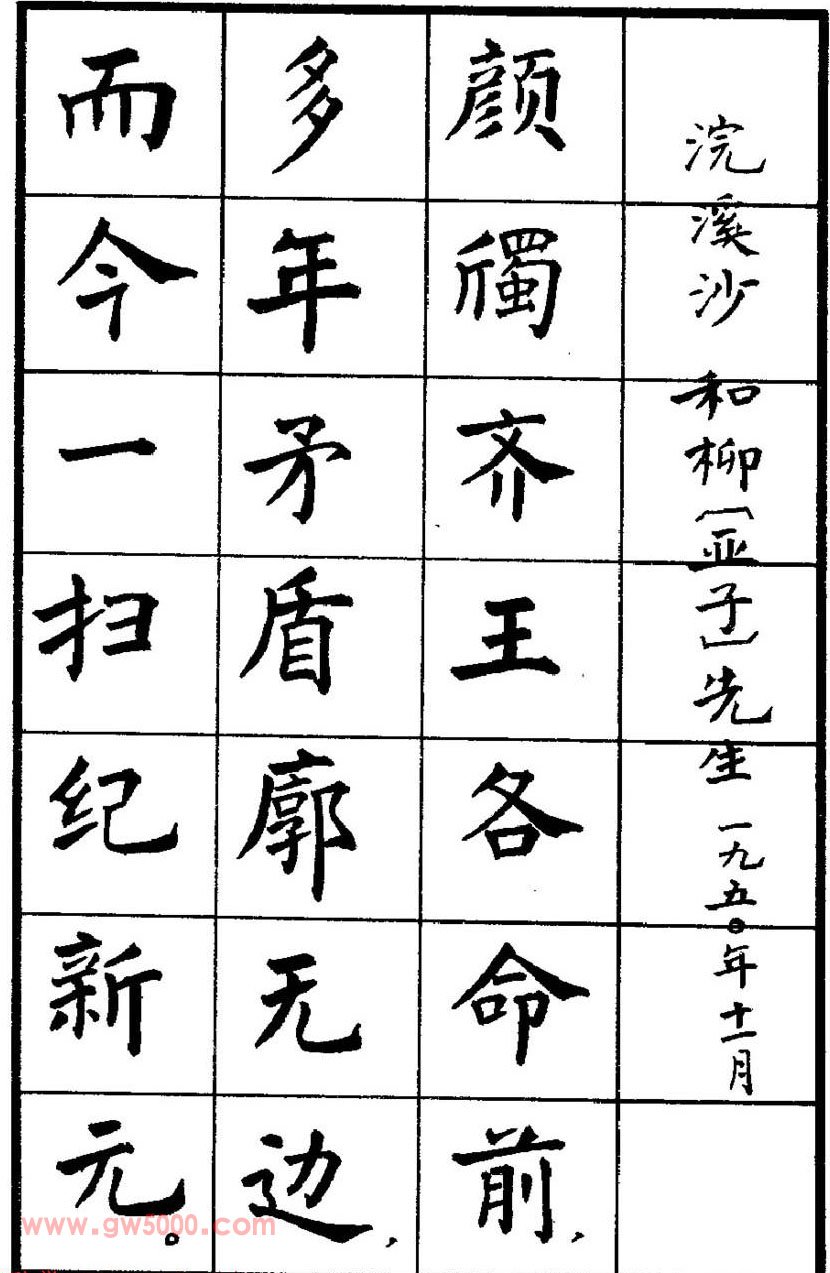 浣溪沙 和柳〔亚子〕先生 一九五〇年十一月
颜斶齐王各命前，
多年矛盾廓无边，
而今一扫纪新元。
www.gw5000.com